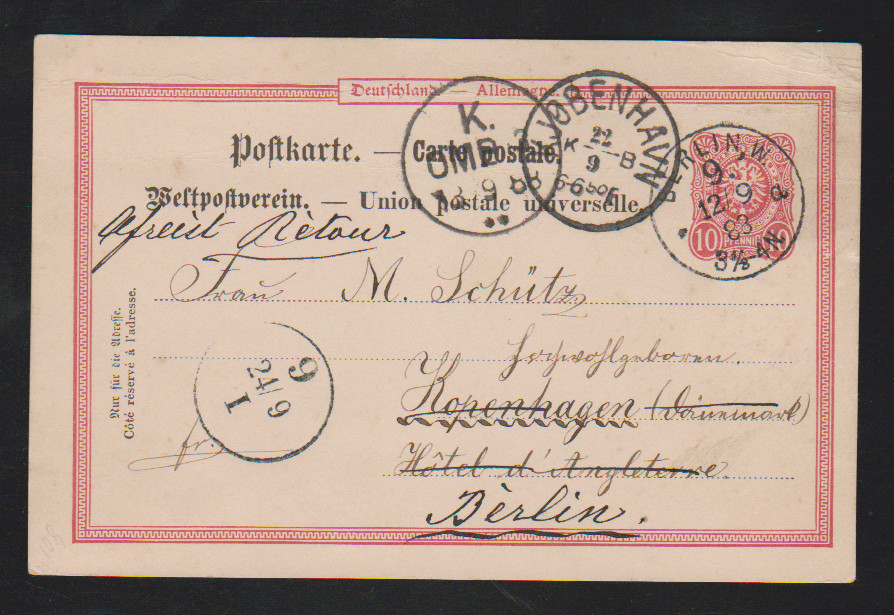 Deutschland. — Allemagne.
Postkarte. — Carte postale.
Weltpostverein. — Union postale universelle.
K.
OMB. 2
3 9 88
KJØBENHAVN
22
K B
9
BERLIN, W.
9.
12/9
88
3½-4N.
10 PFENNIG 10
Afreist Rètour
Frau M. Schütz
Hochwohlgeboren.
Kopenhagen (Dänemark)
Hôtel d'Angleterre.
Berlin.
Nur für die Adresse.
Côté réservé à l'adresse.
9
24/9
I
fr.